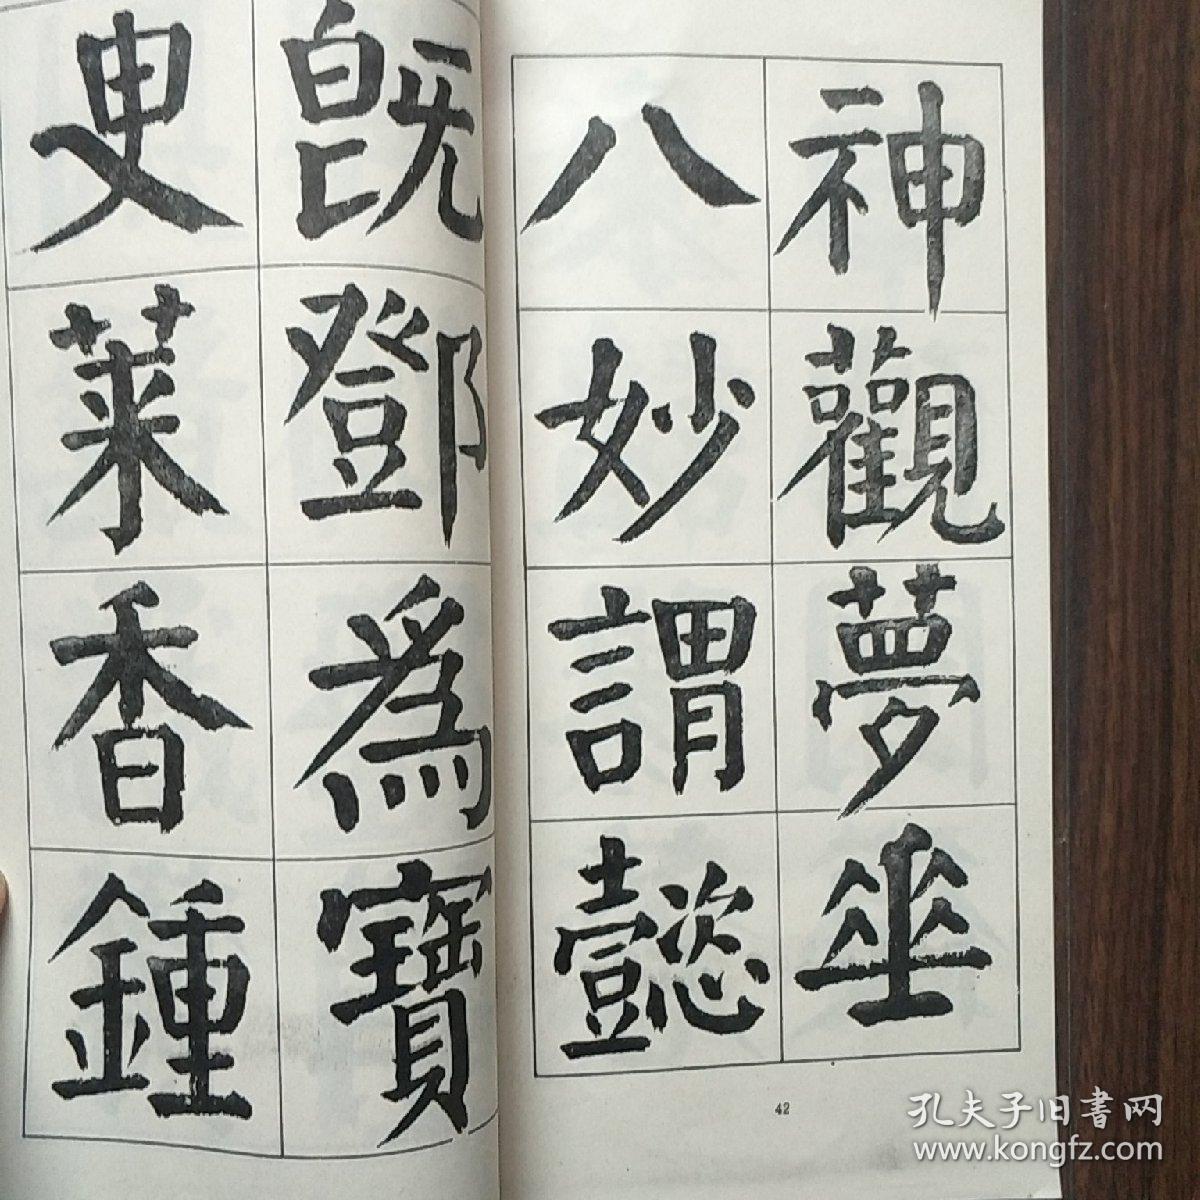 神觀夢華
八妙謂懿
既鄧爲寶
叟菜香鍾
42
孔夫子旧書网
www.kongfz.com